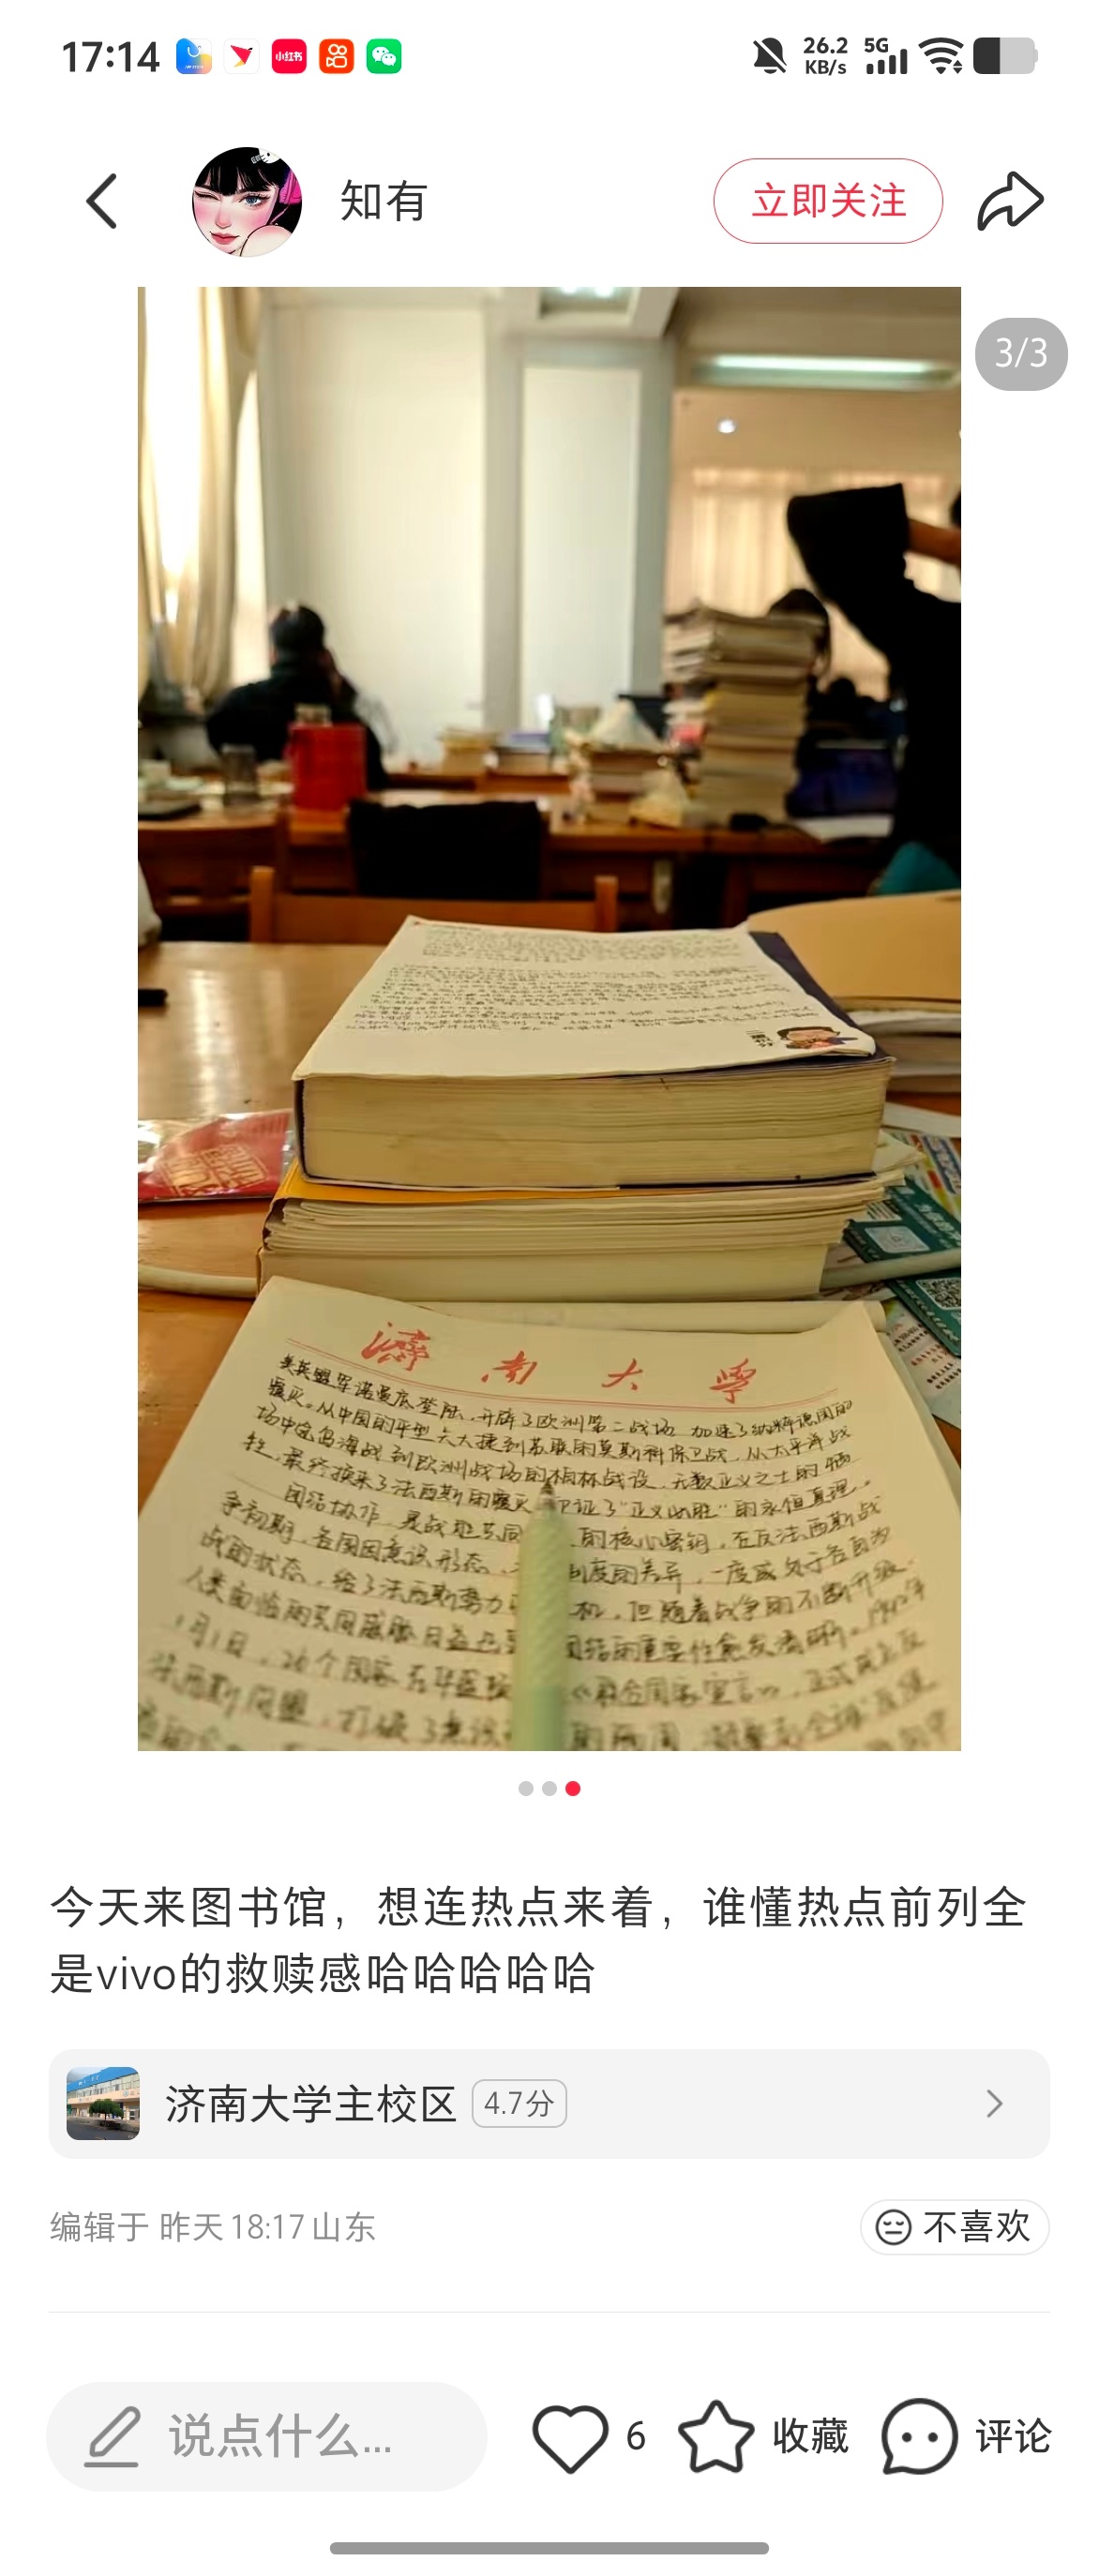 17:14
小红书
26.2
KB/s
5G
知有
立即关注
3/3
濟南大學
美英盟军诺曼底登陆，开辟了欧洲第二战场，加速了纳粹德国的
覆灭。从中国的平型关大捷到苏联的莫斯科保卫战，从太平洋战
场中途岛海战到欧洲战场的柏林战役，无数正义之士的牺
牲，最终换来了法西斯的覆灭 印证了“正义必胜”的永恒真理。
团结协作，是战胜共同 的核心密钥，在反法西斯战
争初期，各国因意识形态、 制度的差异，一度陷于各自为
战的状态，给了法西斯势力 机，但随着战争的不断升级
人类面临的共同威胁日益 团结的重要性愈发清晰。1942年
1月1日，26个国家在华盛顿 《联合国家宣言》，正式
法西斯同盟，打破了意识
今天来图书馆，想连热点来着，谁懂热点前列全
是vivo的救赎感哈哈哈哈哈
济南大学主校区 4.7分
编辑于 昨天 18:17 山东
不喜欢
说点什么...
6
收藏
评论